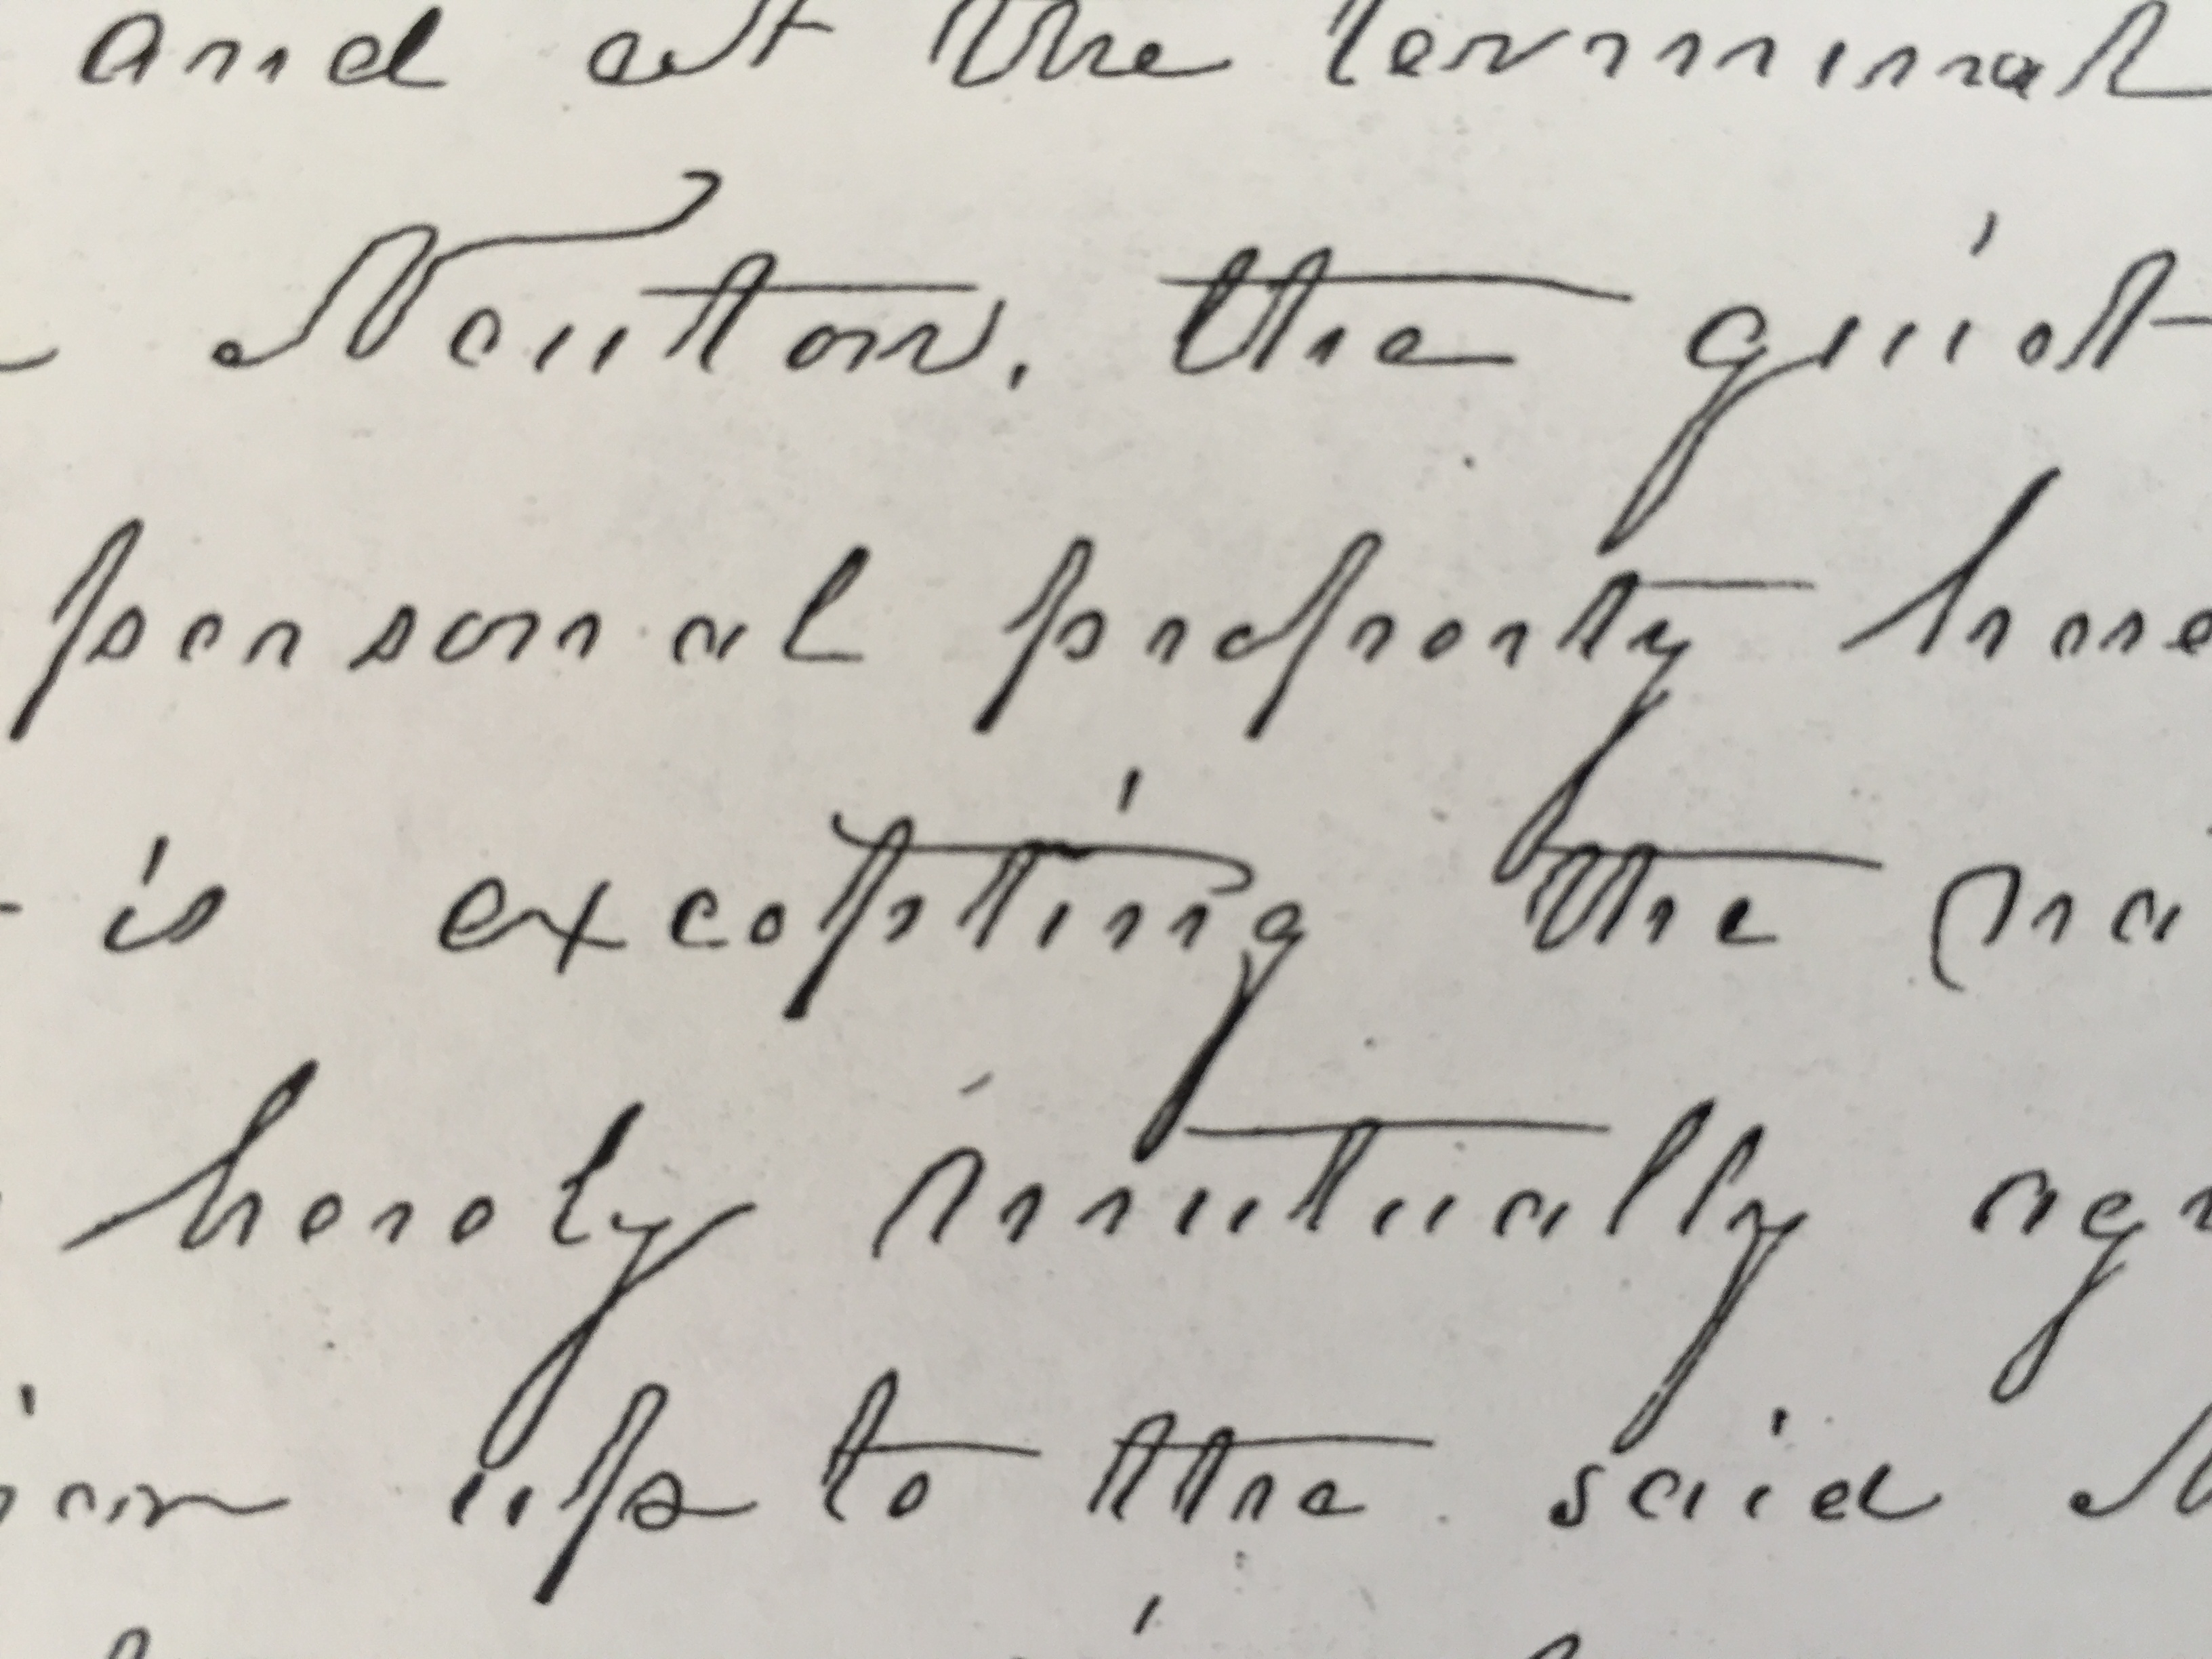 and at the terminat
Newton, the quiet
personal property here
is excepting the
hereby mutually agr
up to the said